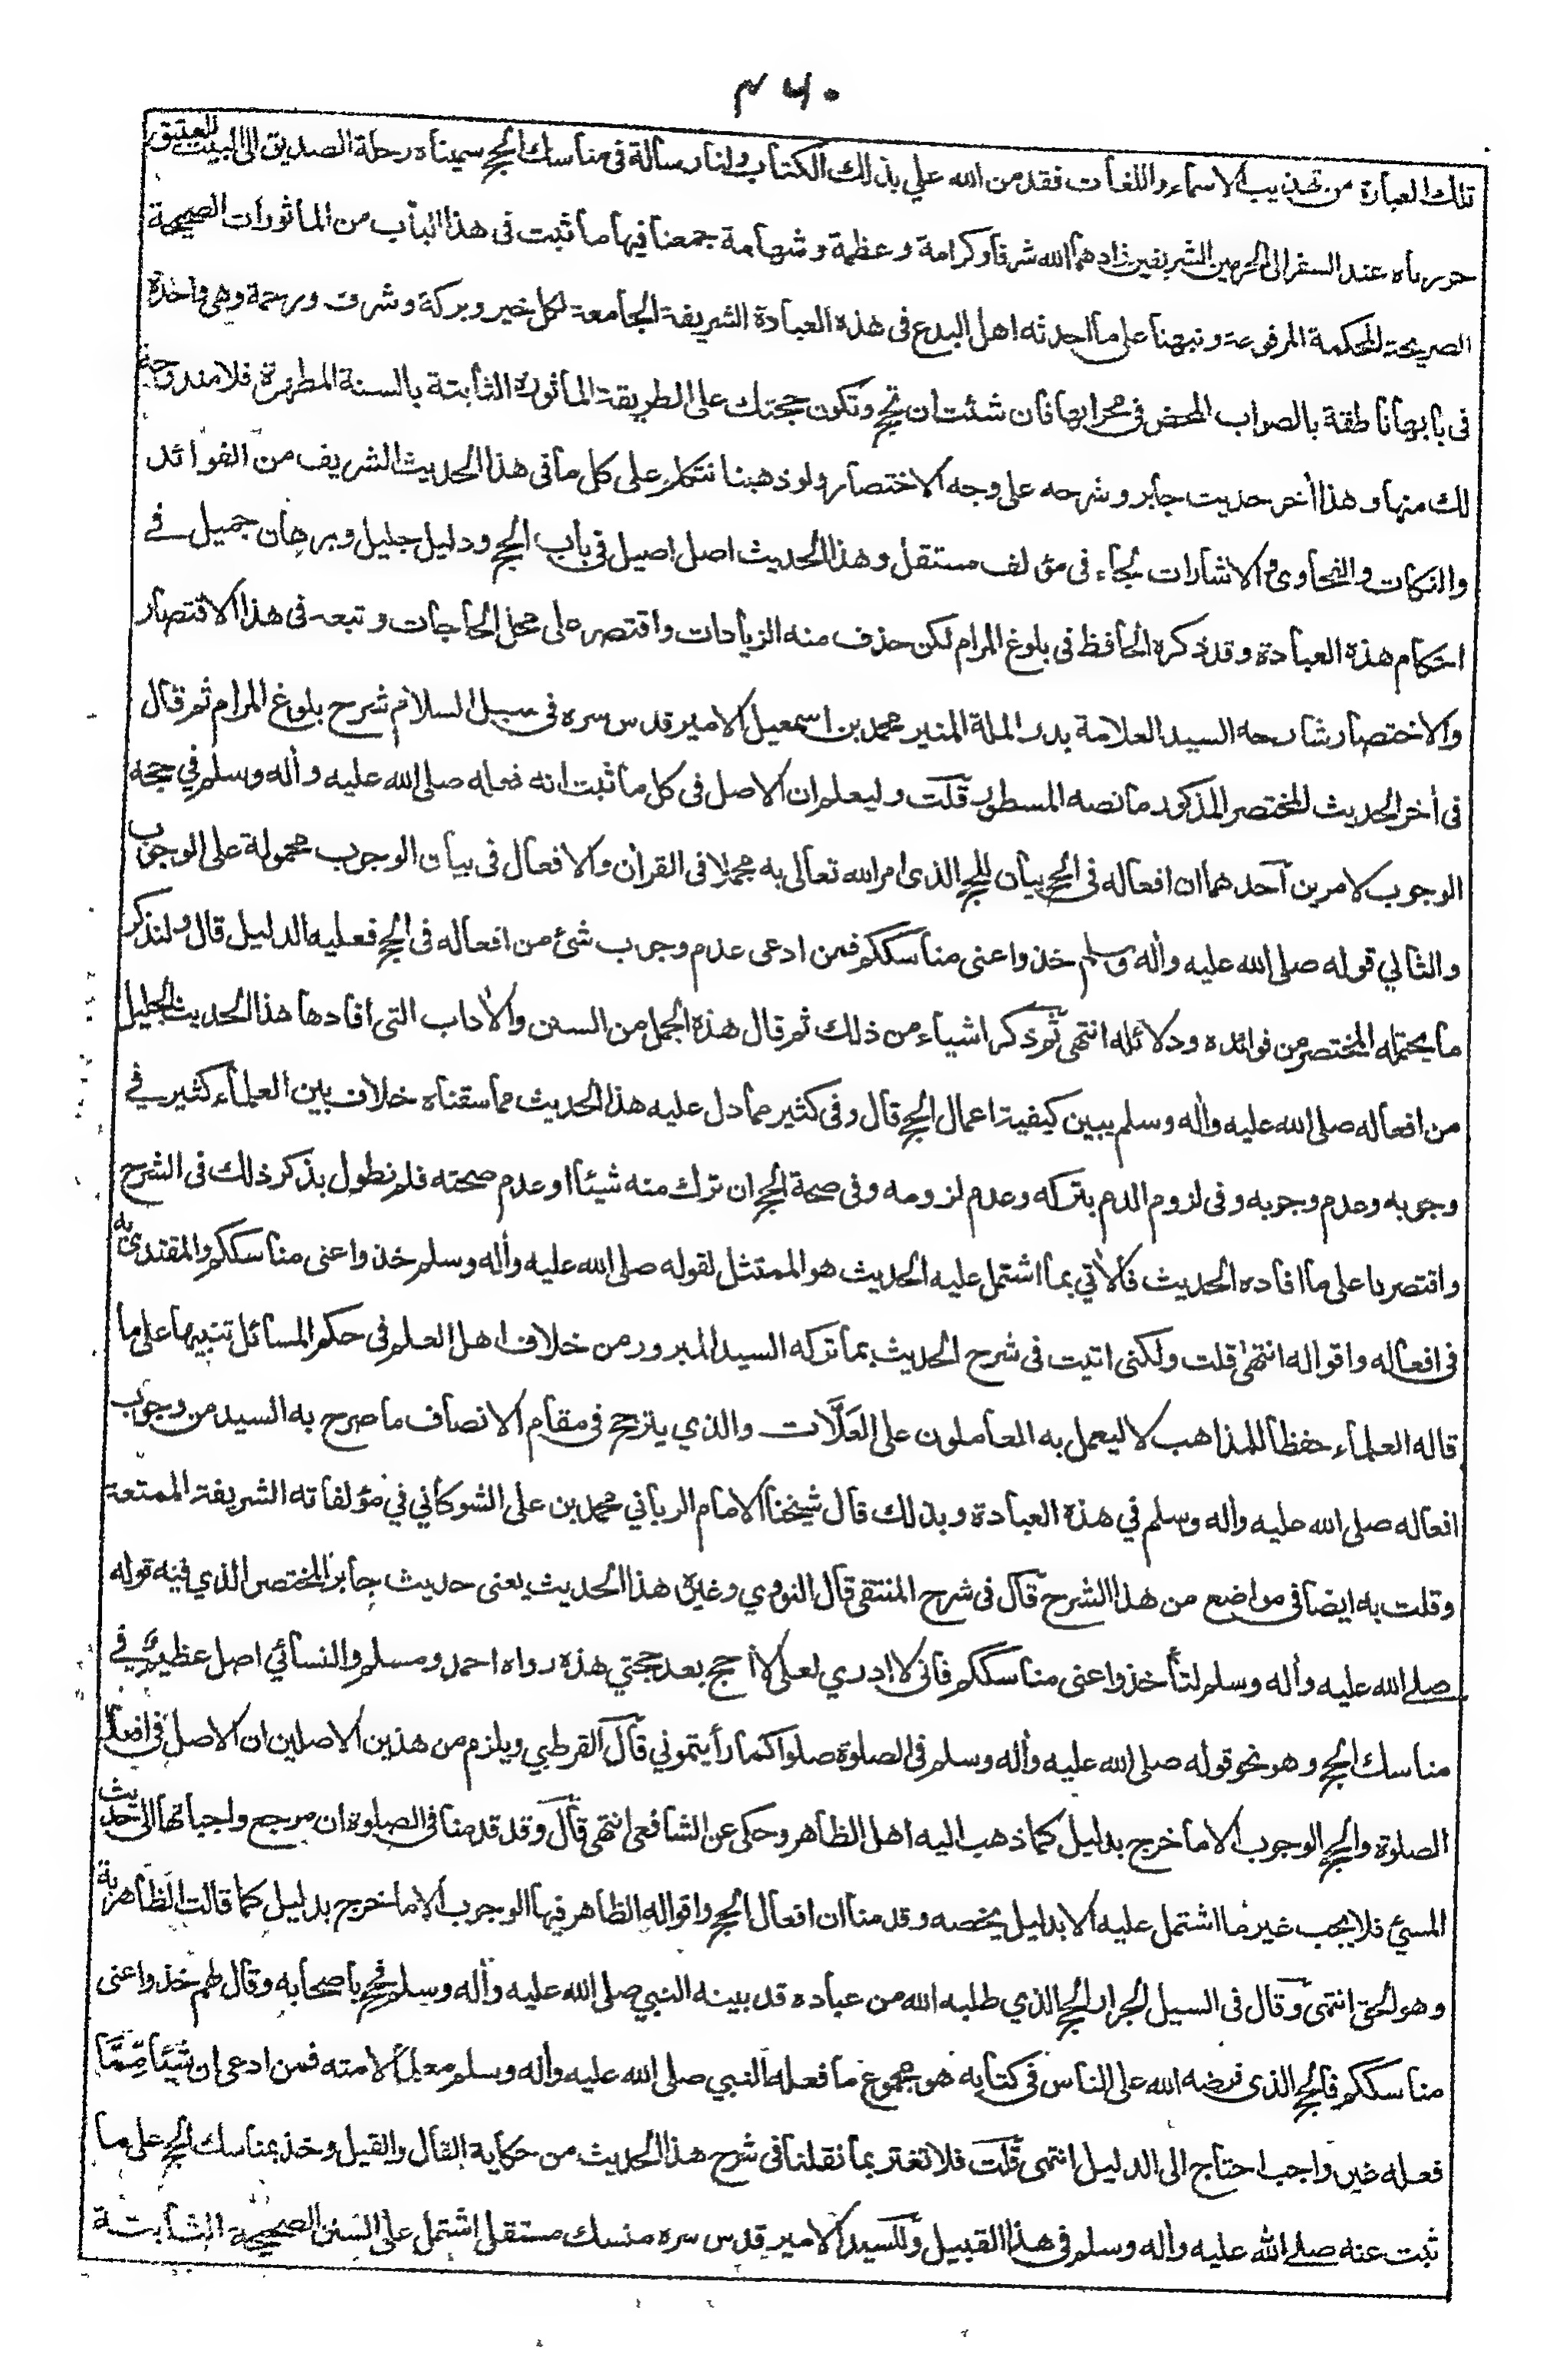 ٤٦٠
تلك العبارة من تهذيب الاسماء واللغات فقد من الله علي بذلك الكتاب ولنا رسالة في مناسك الحج سميناه رحلة الصديق الى البيت العتيق
حررناه عند السفر الى الحرمين الشريفين زادهما الله شرفا وكرامة وعظمة وشهامة جمعنا فيها ما ثبت في هذا الباب من الماثورات الصحيحة
الصريحة المحكمة المرفوعة ونبهنا على ما احدثه اهل البدع في هذه العبادة الشريفة الجامعة لكل خير وبركة وشرف ورحمة وهي واحدة
في بابها ناطقة بالصواب المحض في محرابها فان شئت ان تحج وتكون حجتك على الطريقة الماثورة الثابتة بالسنة المطهرة فلا مندوحة
لك منها وهذا أخر حديث جابر وشرحه على وجه الاختصار ولو ذهبنا نتكلم على كل ما في هذا الحديث الشريف من الفوائد
والنكات والفحاوى والاشارات لجاء في مؤلف مستقل وهذا الحديث اصل اصيل في باب الحج ودليل جليل وبرهان جميل في
احكام هذه العبادة وقد ذكره الحافظ في بلوغ المرام لكن حذف منه الزيادات واقتصر على محل الحاجات وتبعه في هذا الاقتصار
والاختصار شارحه السيد العلامة بدر الملة المنير محمد بن اسمعيل الامير قدس سره في سبل السلام شرح بلوغ المرام ثم قال
في أخر الحديث المختصر المذكور ما نصه المسطور قلت وليعلم ان الاصل في كل ما ثبت انه فعله صلى الله عليه وأله وسلم في حجه
الوجوب لامرين احدهما ان افعاله في الحج بيان للحج الذي امر الله تعالى به مجملا في القرأن والافعال في بيان الوجوب محمولة على الوجوب
والثاني قوله صلى الله عليه وأله وسلم خذوا عني مناسككم فمن ادعى عدم وجوب شئ من افعاله في الحج فعليه الدليل قال ولنذكر
ما يحتمله المختصر من فوائده ودلائله انتهى ثم ذكر اشياء من ذلك ثم قال هذه الجمل من السنن والأداب التي افادها هذا الحديث الجليل
من افعاله صلى الله عليه وأله وسلم يبين كيفية اعمال الحج قال وفي كثير مما دل عليه هذا الحديث مما سقناه خلاف بين العلماء كثير في
وجوبه وعدم وجوبه وفي لزوم الدم بتركه وعدم لزومه وفي صحة الحج ان ترك منه شيئا او عدم صحته فلم نطول بذكر ذلك في الشرح
واقتصرنا على ما افاده الحديث فالأتي بما اشتمل عليه الحديث هو الممتثل لقوله صلى الله عليه وأله وسلم خذوا عني مناسككم والمقتدي به
في افعاله واقواله انتهى قلت ولكني اتيت في شرح الحديث بما تركه السيد المبرور من خلاف اهل العلم في حكم المسائل تنبيها على ما
قاله العلماء حفظا للمذاهب لا ليعمل به العاملون على العلات والذي يترجح في مقام الانصاف ما صرح به السيد من وجوب
افعاله صلى الله عليه وأله وسلم في هذه العبادة وبذلك قال شيخنا الامام الرباني محمد بن علي الشوكاني في مؤلفاته الشريفة الممتعة
وقلت به ايضا في مواضع من هذا الشرح قال في شرح المنتقى قال النووي وغيره هذا الحديث يعني حديث جابر المختصر الذي فيه قوله
صلى الله عليه وأله وسلم لتأخذوا عني مناسككم فاني لا ادري لعلي لا أحج بعد حجتي هذه رواه احمد ومسلم والنسائي اصل عظيم في
مناسك الحج وهو نحو قوله صلى الله عليه وأله وسلم في الصلوة صلوا كما رأيتموني قال القرطبي ويلزم من هذين الاصلين ان الاصل في افعال
الصلوة والحج الوجوب الا ما خرج بدليل كما ذهب اليه اهل الظاهر وحكي عن الشافعي انتهى قال وقد قدمنا في الصلوة ان مرجع واجباتها الى حديث
المسئ فلا يجب غير ما اشتمل عليه الا بدليل يخصه وقدمنا ان افعال الحج واقواله الظاهر فيها الوجوب الا ما خرج بدليل كما قالت الظاهرية
وهو الحق انتهى وقال في السيل الجرار الحج الذي طلبه الله من عباده قد بينه النبي صلى الله عليه وأله وسلم فحج باصحابه وقال لهم خذوا عني
مناسككم فالحج الذي فرضه الله على الناس في كتابه هو مجموع ما فعله النبي صلى الله عليه وأله وسلم معلما لامته فمن ادعى ان شيئا مما
فعله غير واجب احتاج الى الدليل انتهى قلت فلا تغتر بما نقلنا في شرح هذا الحديث من حكاية القال والقيل وخذ بمناسك الحج على ما
ثبت عنه صلى الله عليه وأله وسلم في هذا القبيل وللسيد الامير قدس سره منسك مستقل اشتمل على السنن الصحيحة الثابتة